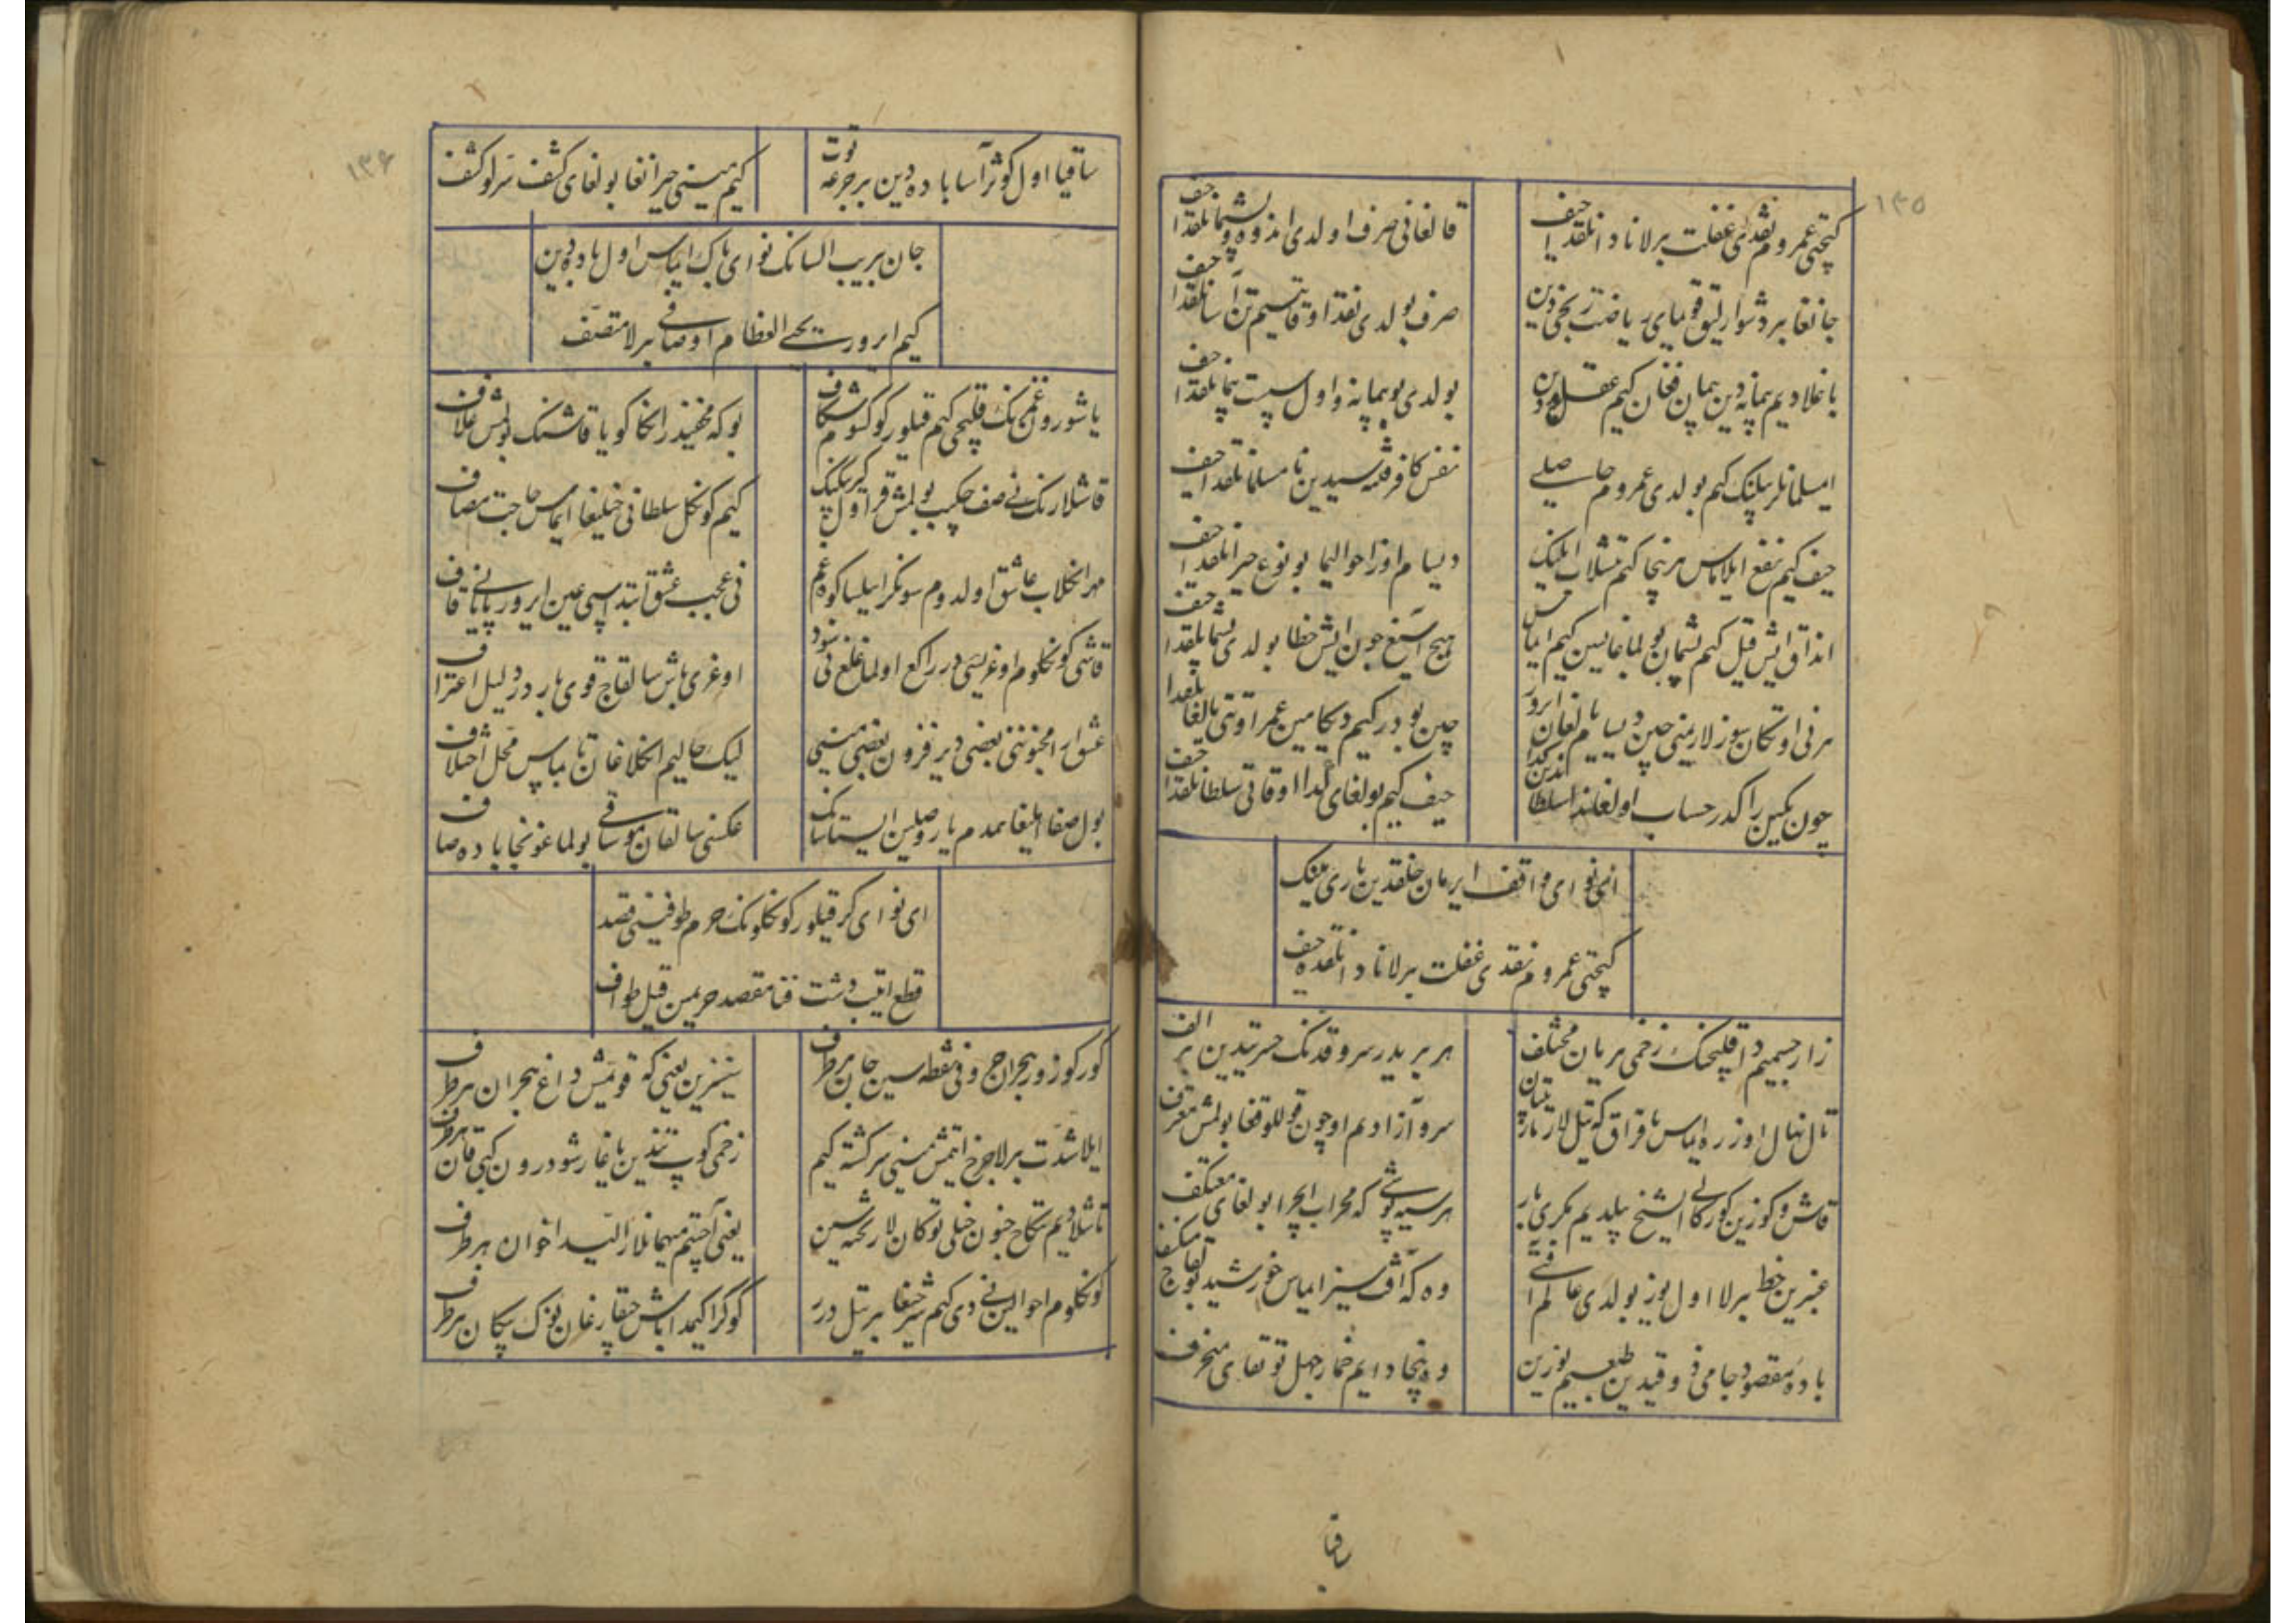 ۱۳۵
کیچتی عمروم نقدی غفلت برلا نادانلقدا حیف
قالغانی صرف اولدی اندوه و پشیمانلقدا حیف
جانغا بر دشوارلیق قویمای ریاضت رنجی دین
صرف بولدی نقد اوقاتیم تن آسانلقدا حیف
باغلادیم پیمانه دین پیمان فغان کیم عقل و دین
بولدی بو پیمانه و اول سست پیمانلقدا حیف
ای مسلمانلر بیلینک کیم بولدی عمروم حاصلی
نفس کافر قلمه سیدین نامسلمانلقدا حیف
حیف کیم نفع ایلاماس هر نیچا کیم تیشلاب ایلیک
دیسام اوز احوالیما بو نوع حیرانلقدا حیف
انداق ایش قیل کیم پشیمان بولماغایسین کیم ایماس
هیچ اسیغ چون ایش خطا بولدی پشیمانلقدا حیف
هر نی اوتکان سوزلارمنی چین دیسام یالغان ایرور
چین بو درکیم دیکامین عمر اوتتی یالغانلقدا
چون یکسین راکدر حساب اولغاندا سلطاندین گدا
حیف کیم بولغای گدا اوقاتی سلطانلقدا حیف
ای نوای واقف ایرمان خلقدین باری مینک
کیچتی عمروم نقدی غفلت برلا نادانلقده حیف
زار جسمیم دا قلیچینک زخمی هر یان مختلف
هر بریدر سرو قدینک حسرتیدین بر الف
تال نهال اوزره ایماس یافراق که تیل لار تارتیبان
سرو آزادیم اوچون قوللوقغا بولمش معترف
قاش و کوزین کورکالی ای شیخ بیلدیم مکری بار
هر سیه پوشی که محراب ایچرا بولغای معتکف
عنبرین خط برلا اول یوز بولدی عالم آفتی
وه که آفت سیز ایماس خورشید بولغاچ منکسف
باده مقصود جامی ذوقیدین طبعیم یوزین
وه نیچا دایم خمار جهل توتقای منحرف
ساقیا
۱۳۶
ساقیا اول کوثر آسا باده دین بر جرعه توت
کیم مینی حیرانغا بولغای کشف سر لو کشف
جان بریب السانک نوای باک ایماس اول باده دین
کیم ایرور یحیی العظام اوصافی برلا متصف
یاشورون غمزنک قلیچی کیم قیلور کوکسوم شکاف
بو که مخفیدر انکا کویا قاشینک بولمش غلاف
قاشلارنک نی صف چیکیب بولمش قراول کیرپیکینک
کیم کونکل سلطانی خیلیغا ایماس حاجت مصاف
مهر انکلاب عاشق اولدوم سونکرا بیلسا کوه غم
نی عجب عشق ابتداسی عین ایرور پایانی قاف
قاشی کونکلوم اوغریسی در راکع اولماغلیغ نی سود
اوغری باش سالقاج قوی باردر دلیل اعتراف
عشق ارا مجنوننی بعضی دیر فزون بعضی مینی
لیک حالیم انکلاغان تاپماس محل اختلاف
بول صفا اهلیغا همدم یار وصلین ایستاسانک
عکسنی سالقانموساقی بولماغونچا باده صاف
ای نوای کر قیلور کونکلونک حرم طوفینی قصد
قطع ایتیب دشت فنا مقصد حریمین قیل طواف
کور کوز و هجراج وفی نقطه سین جان هر طرف
سیزین یعنی که قویمش داغ هجران هر طرف
ایلا شدت برلا چرخ ایتمش مینی سرکشته کیم
زخمی کوپ تندین یاغارشودرون کیبی قان هر طرف
تاشلادیم تیکاج جنون خیلی توکان لار نخته سین
یعنی آچتیم میهمانلار آلیدا خوان هر طرف
کونکلوم احوالین نی دی کیم شرحیغا بر تیل درر
کوکراکیمدا باش چیقارغان نوک پیکان هر طرف